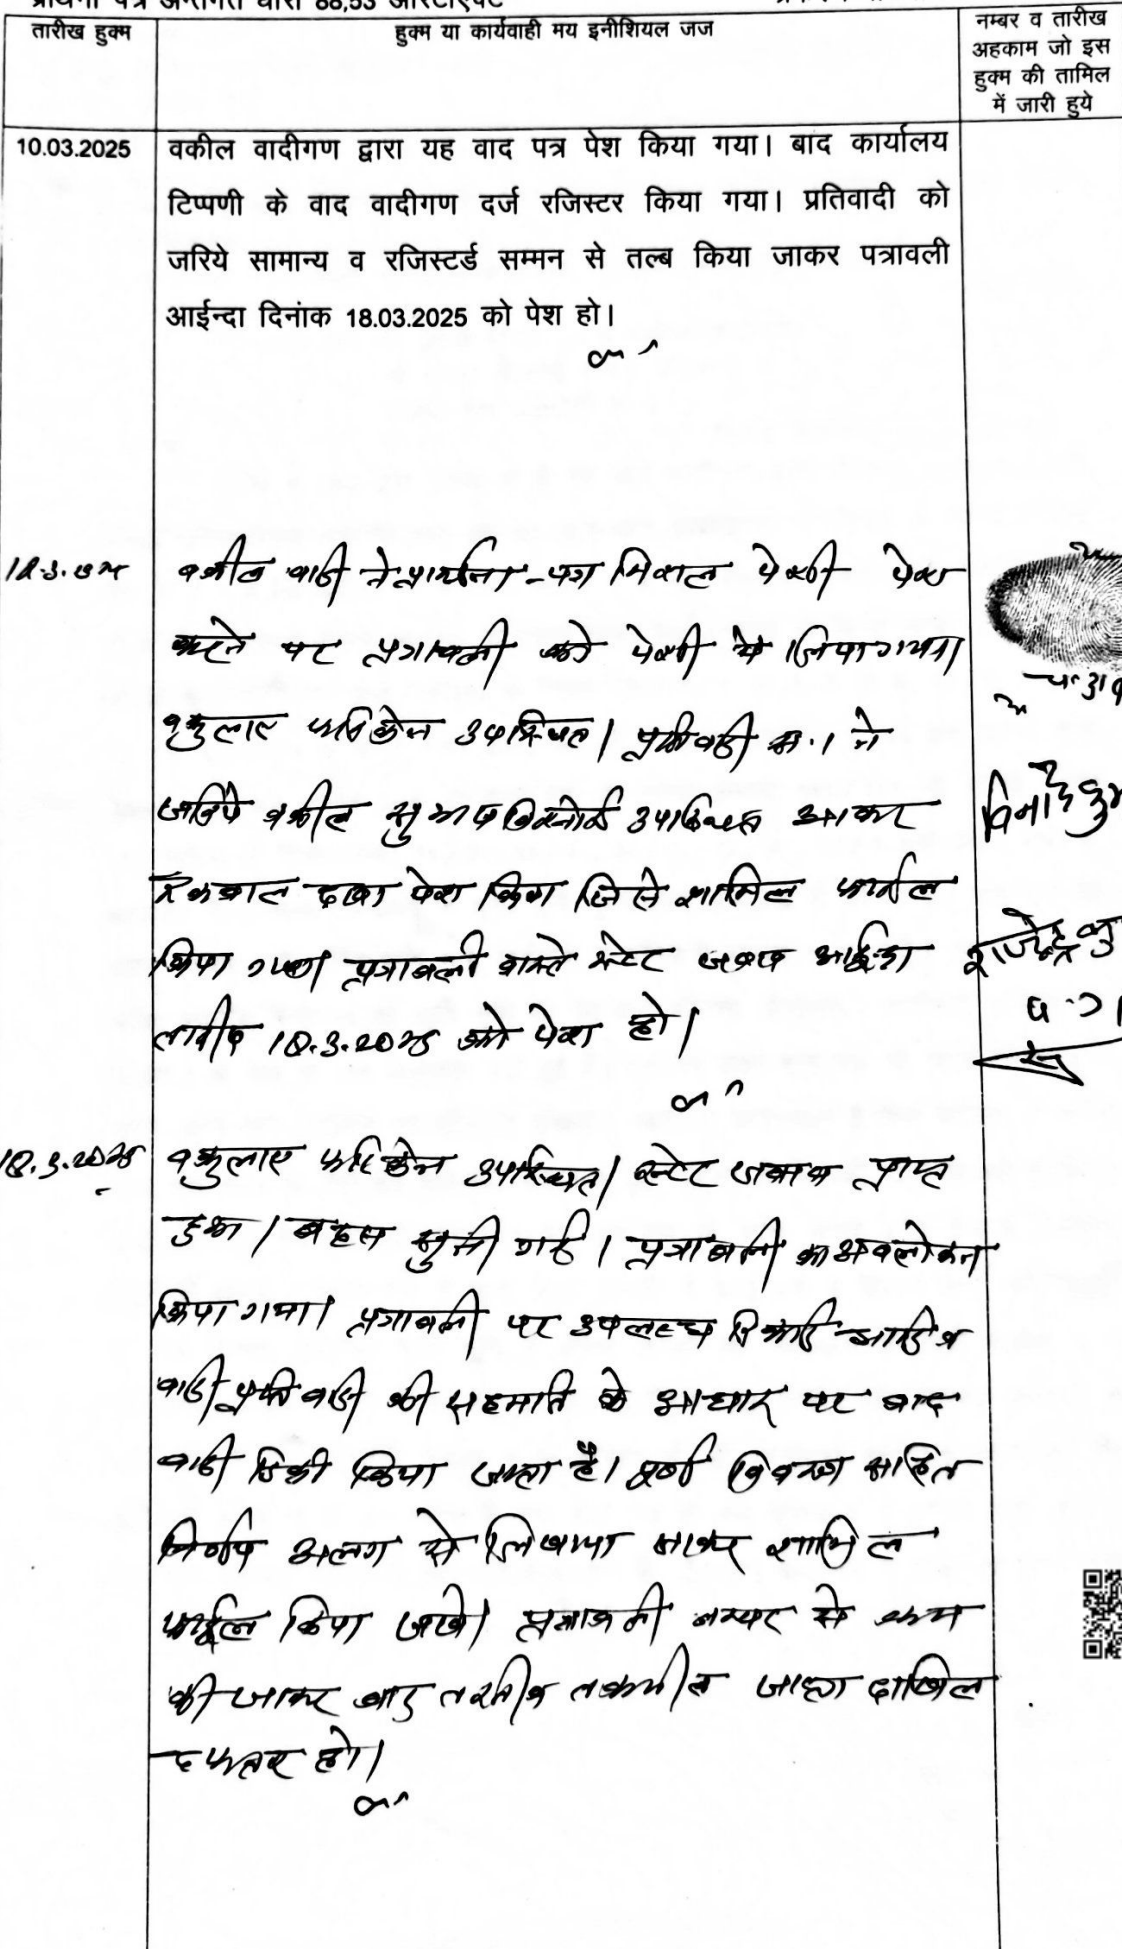 प्रार्थना पत्र अन्तर्गत धारा 88,53 आरटीएक्ट
तारीख हुक्म
हुक्म या कार्यवाही मय इनीशियल जज
नम्बर व तारीख
अहकाम जो इस
हुक्म की तामिल
में जारी हुये
10.03.2025
वकील वादीगण द्वारा यह वाद पत्र पेश किया गया। बाद कार्यालय
टिप्पणी के वाद वादीगण दर्ज रजिस्टर किया गया। प्रतिवादी को
जरिये सामान्य व रजिस्टर्ड सम्मन से तल्ब किया जाकर पत्रावली
आईन्दा दिनांक 18.03.2025 को पेश हो।
वकील वादी ने प्रार्थना-पत्र पेशी पेश
करने पर पत्रावली को पेशी में लिया गया।
वकुलाए फरिकेन उपस्थित। प्रतिवादी सं.1 ने
जरिये वकील सुभाष विश्नोई उपस्थित आकर
पेश किया जिसे शामिल फाईल
किया गया। पत्रावली वास्ते स्टेट जवाब आईन्दा
तारीख को पेश हो।
वकुलाए फरिकेन उपस्थित। स्टेट जवाब प्राप्त
हुआ। बहस सुनी गई। पत्रावली का अवलोकन
किया गया। पत्रावली पर उपलब्ध रिकार्ड
वादी प्रतिवादी की सहमति के आधार पर वाद
वादी डिक्री किया जाता है। पूर्ण विवरण सहित
निर्णय अलग से लिखाया जाकर शामिल
फाईल किया जावे। पत्रावली नम्बर से कम
की जाकर बाद तरतीब तकमील दाखिल
दफतर हो।
विनोद कु
राजेन्द्र कु